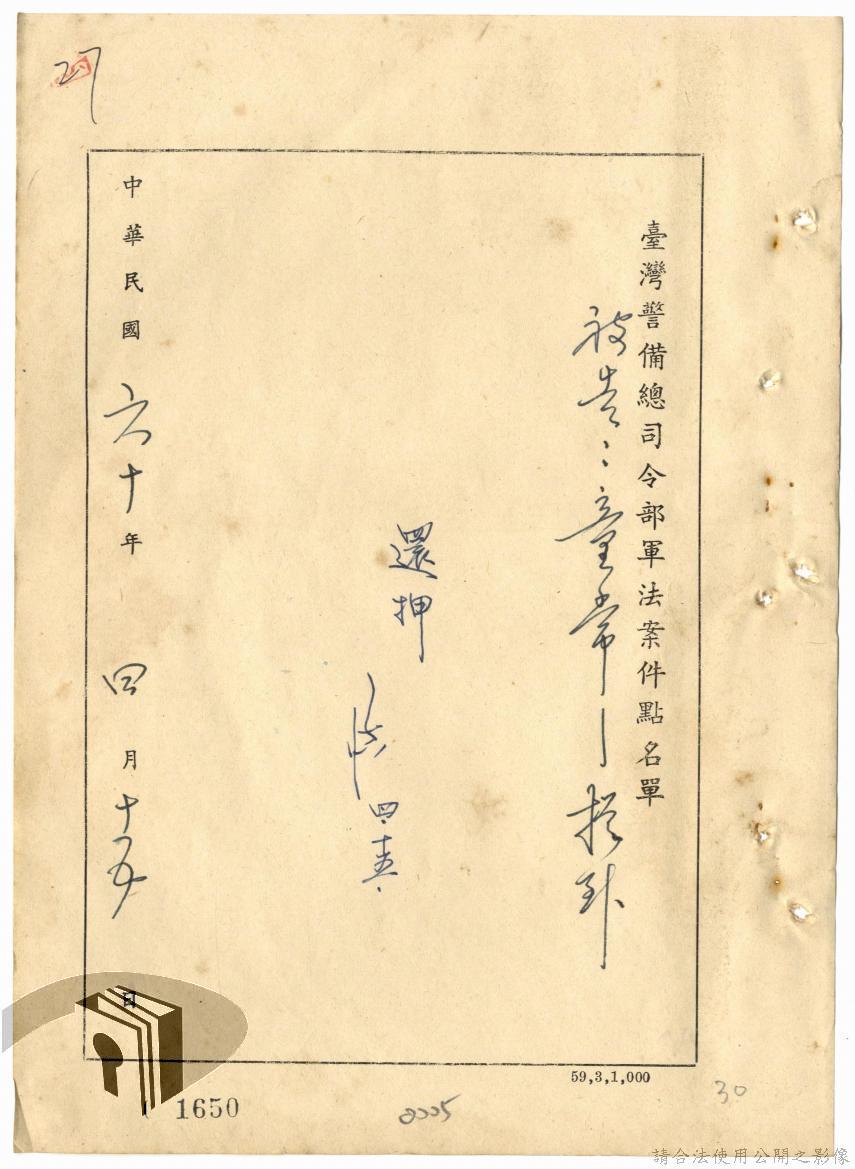 27
臺灣警備總司令部軍法案件點名單
被告：童常 提到
還押
四.十五.
中華民國六十年四月十五日
59,3,1,000
1650
2005
30
請合法使用公開之影像